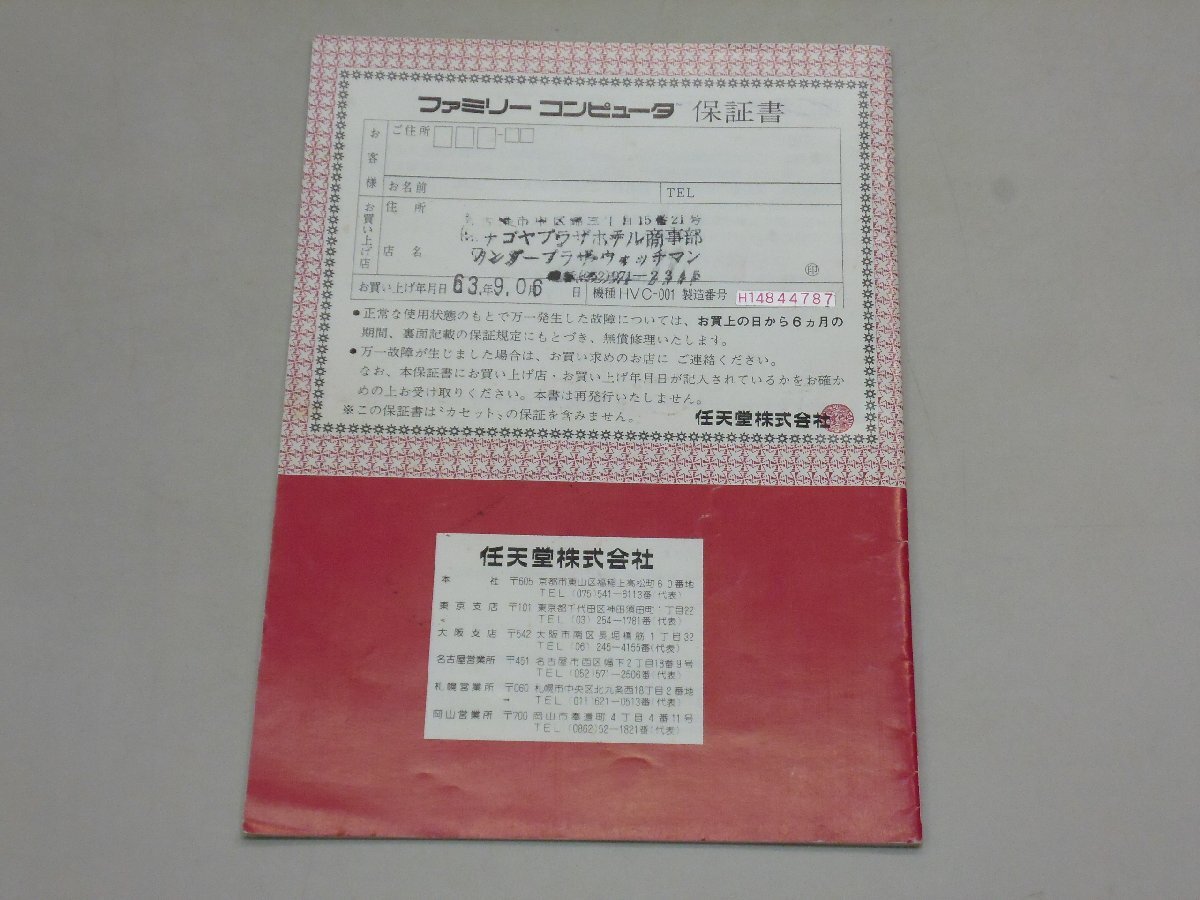 ファミリー コンピュータ™ 保証書
お客様
ご住所
お名前
TEL
お買い上げ店
住所
市中区 三丁目15番21号
ナゴヤプラザホテル商事部
店名
ワンダープラザ・ウォッチマン
印
お買い上げ年月日 63.年9.0月6日 機種HVC-001 製造番号 H14844787
●正常な使用状態のもとで万一発生した故障については、お買上の日から6ヵ月の
期間、裏面記載の保証規定にもとづき、無償修理いたします。
●万一故障が生じました場合は、お買い求めのお店に ご連絡ください。
なお、本保証書にお買い上げ店・お買い上げ年月日が記入されているかをお確か
めの上お受け取りください。本書は再発行いたしません。
※この保証書は〝カセット〟の保証を含みません。
任天堂株式会社
任天堂株式会社
本社 〒605 京都市東山区福稲上高松町60番地
TEL (075)541-6113番(代表)
東京支店 〒101 東京都千代田区神田須田町1丁目22
TEL (03) 254-1781番(代表)
大阪支店 〒542 大阪市南区長堀橋筋1丁目32
TEL (06) 245-4155番(代表)
名古屋営業所 〒451 名古屋市西区幅下2丁目18番9号
TEL (052)571-2506番(代表)
札幌営業所 〒060 札幌市中央区北九条西18丁目2番地
TEL (011)621-0513番(代表)
岡山営業所 〒700 岡山市奉還町4丁目4番11号
TEL (0862)52-1821番(代表)